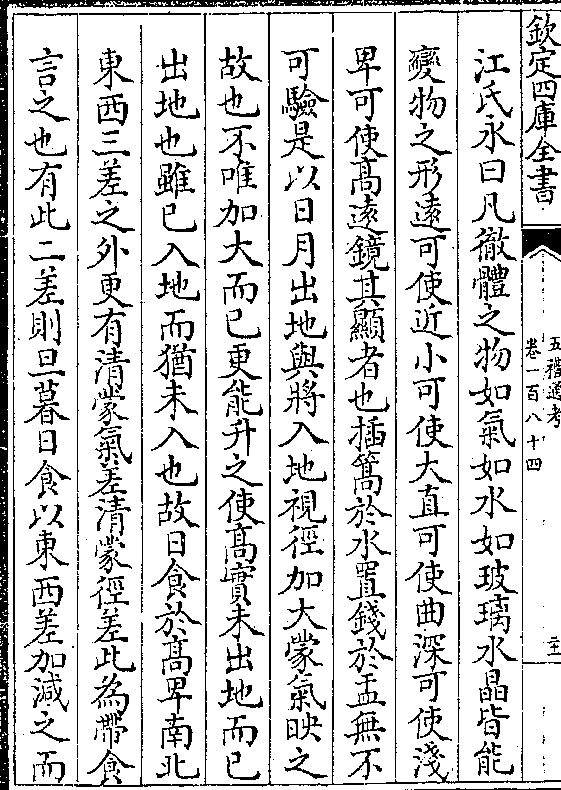 欽定四庫全書
五禮通考
卷一百八十四
江氏永曰凡徹體之物如氣如水如玻璃水晶皆能
變物之形遠可使近小可使大直可使曲深可使淺
卑可使髙逺鏡其顯者也插篙於水置錢於盂無不
可驗是以日月出地與將入地視徑加大蒙氣映之
故也不唯加大而已更能升之使髙實未出地而已
出地也雖已入地而猶未入也故日食於髙卑南北
東西三差之外更有清蒙氣差清蒙徑差此為帶食
言之也有此二差則旦暮日食以東西差加減之而